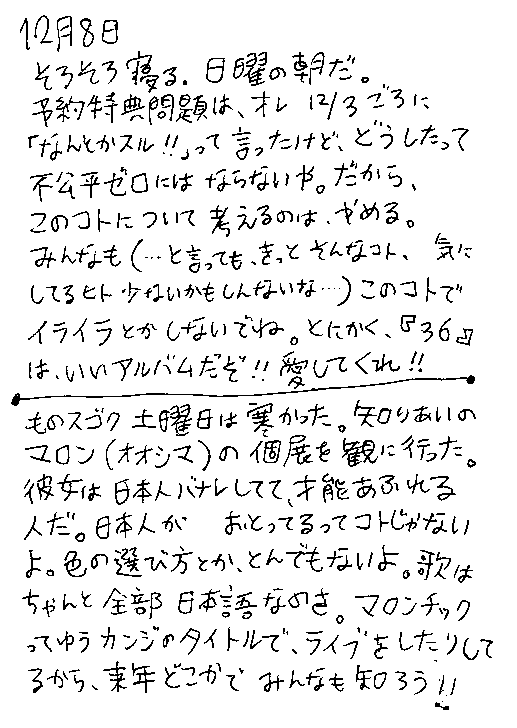 12月8日
そろそろ寝る. 日曜の朝だ。
予約特典問題は、オレ 12/3ごろに
「なんとかスル!!」って言ったけど、どうしたって
不公平ゼロにはならないや。だから、
このコトについて考えるのは、やめる。
みんなも(…と言っても、きっとそんなコト、気に
してるヒト少ないかもしんないな…)このコトで
イライラとかしないでね。とにかく、『36』
は、いいアルバムだぞ!!愛してくれ!!
ものスゴク土曜日は寒かった。知りあいの
マロン(オオシマ)の個展を観に行った。
彼女は日本人バナレしてて、才能あふれる
人だ。日本人が おとってるってコトじゃない
よ。色の選び方とか、とんでもないよ。歌は
ちゃんと全部日本語なのさ。マロンチック
ってゆうカンジのタイトルで、ライブをしたりして
るから、来年どこかでみんなも知ろう!!